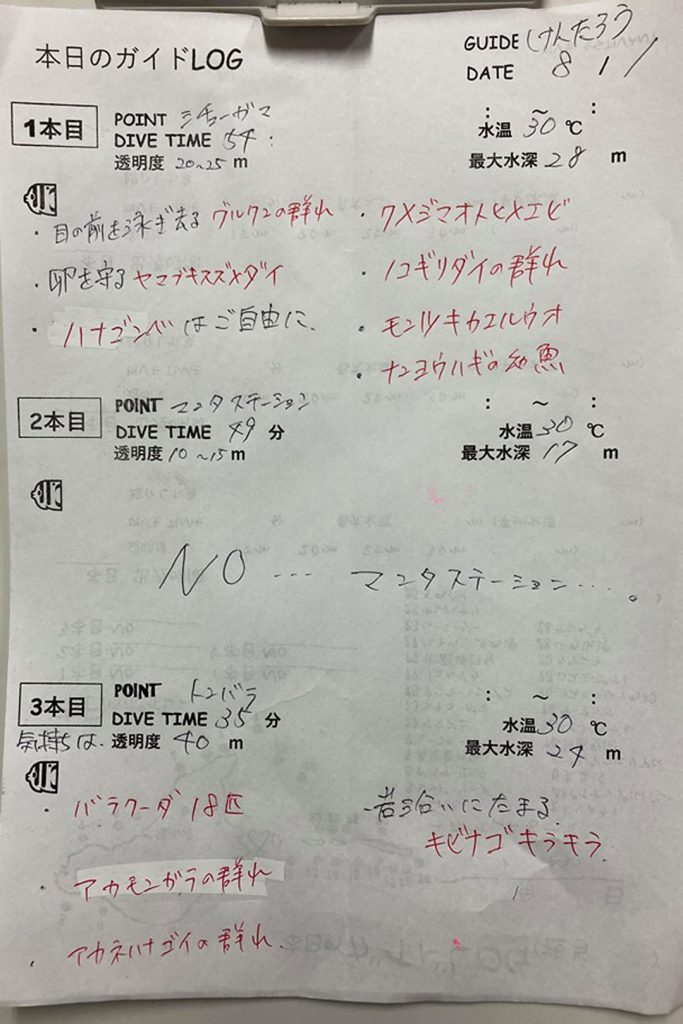 本日のガイドLOG
GUIDE けんたろう
DATE 8 1 /
1本目
POINT シチューガマ
DIVE TIME 54 :
透明度 20~25 m
: ~ :
水温 30 ℃
最大水深 28 m
・目の前を泳ぎ去る グルクンの群れ
・卵を守る ヤマブキスズメダイ
・ハナゴンベ はご自由に、
・クメジマオトヒメエビ
・ノコギリダイの群れ
・モンツキカエルウオ
・ナンヨウハギの幼魚
2本目
POINT マンタステーション
DIVE TIME 49 分
透明度 10~15 m
: ~ :
水温 30 ℃
最大水深 17 m
NO … マンタステーション…。
3本目
POINT トンバラ
DIVE TIME 35 分
気持ちは、 透明度 40 m
: ~ :
水温 30 ℃
最大水深 24 m
・バラクーダ 18匹
・アカモンガラの群れ
・アカネハナゴイの群れ
・岩合いにたまる
キビナゴキラキラ